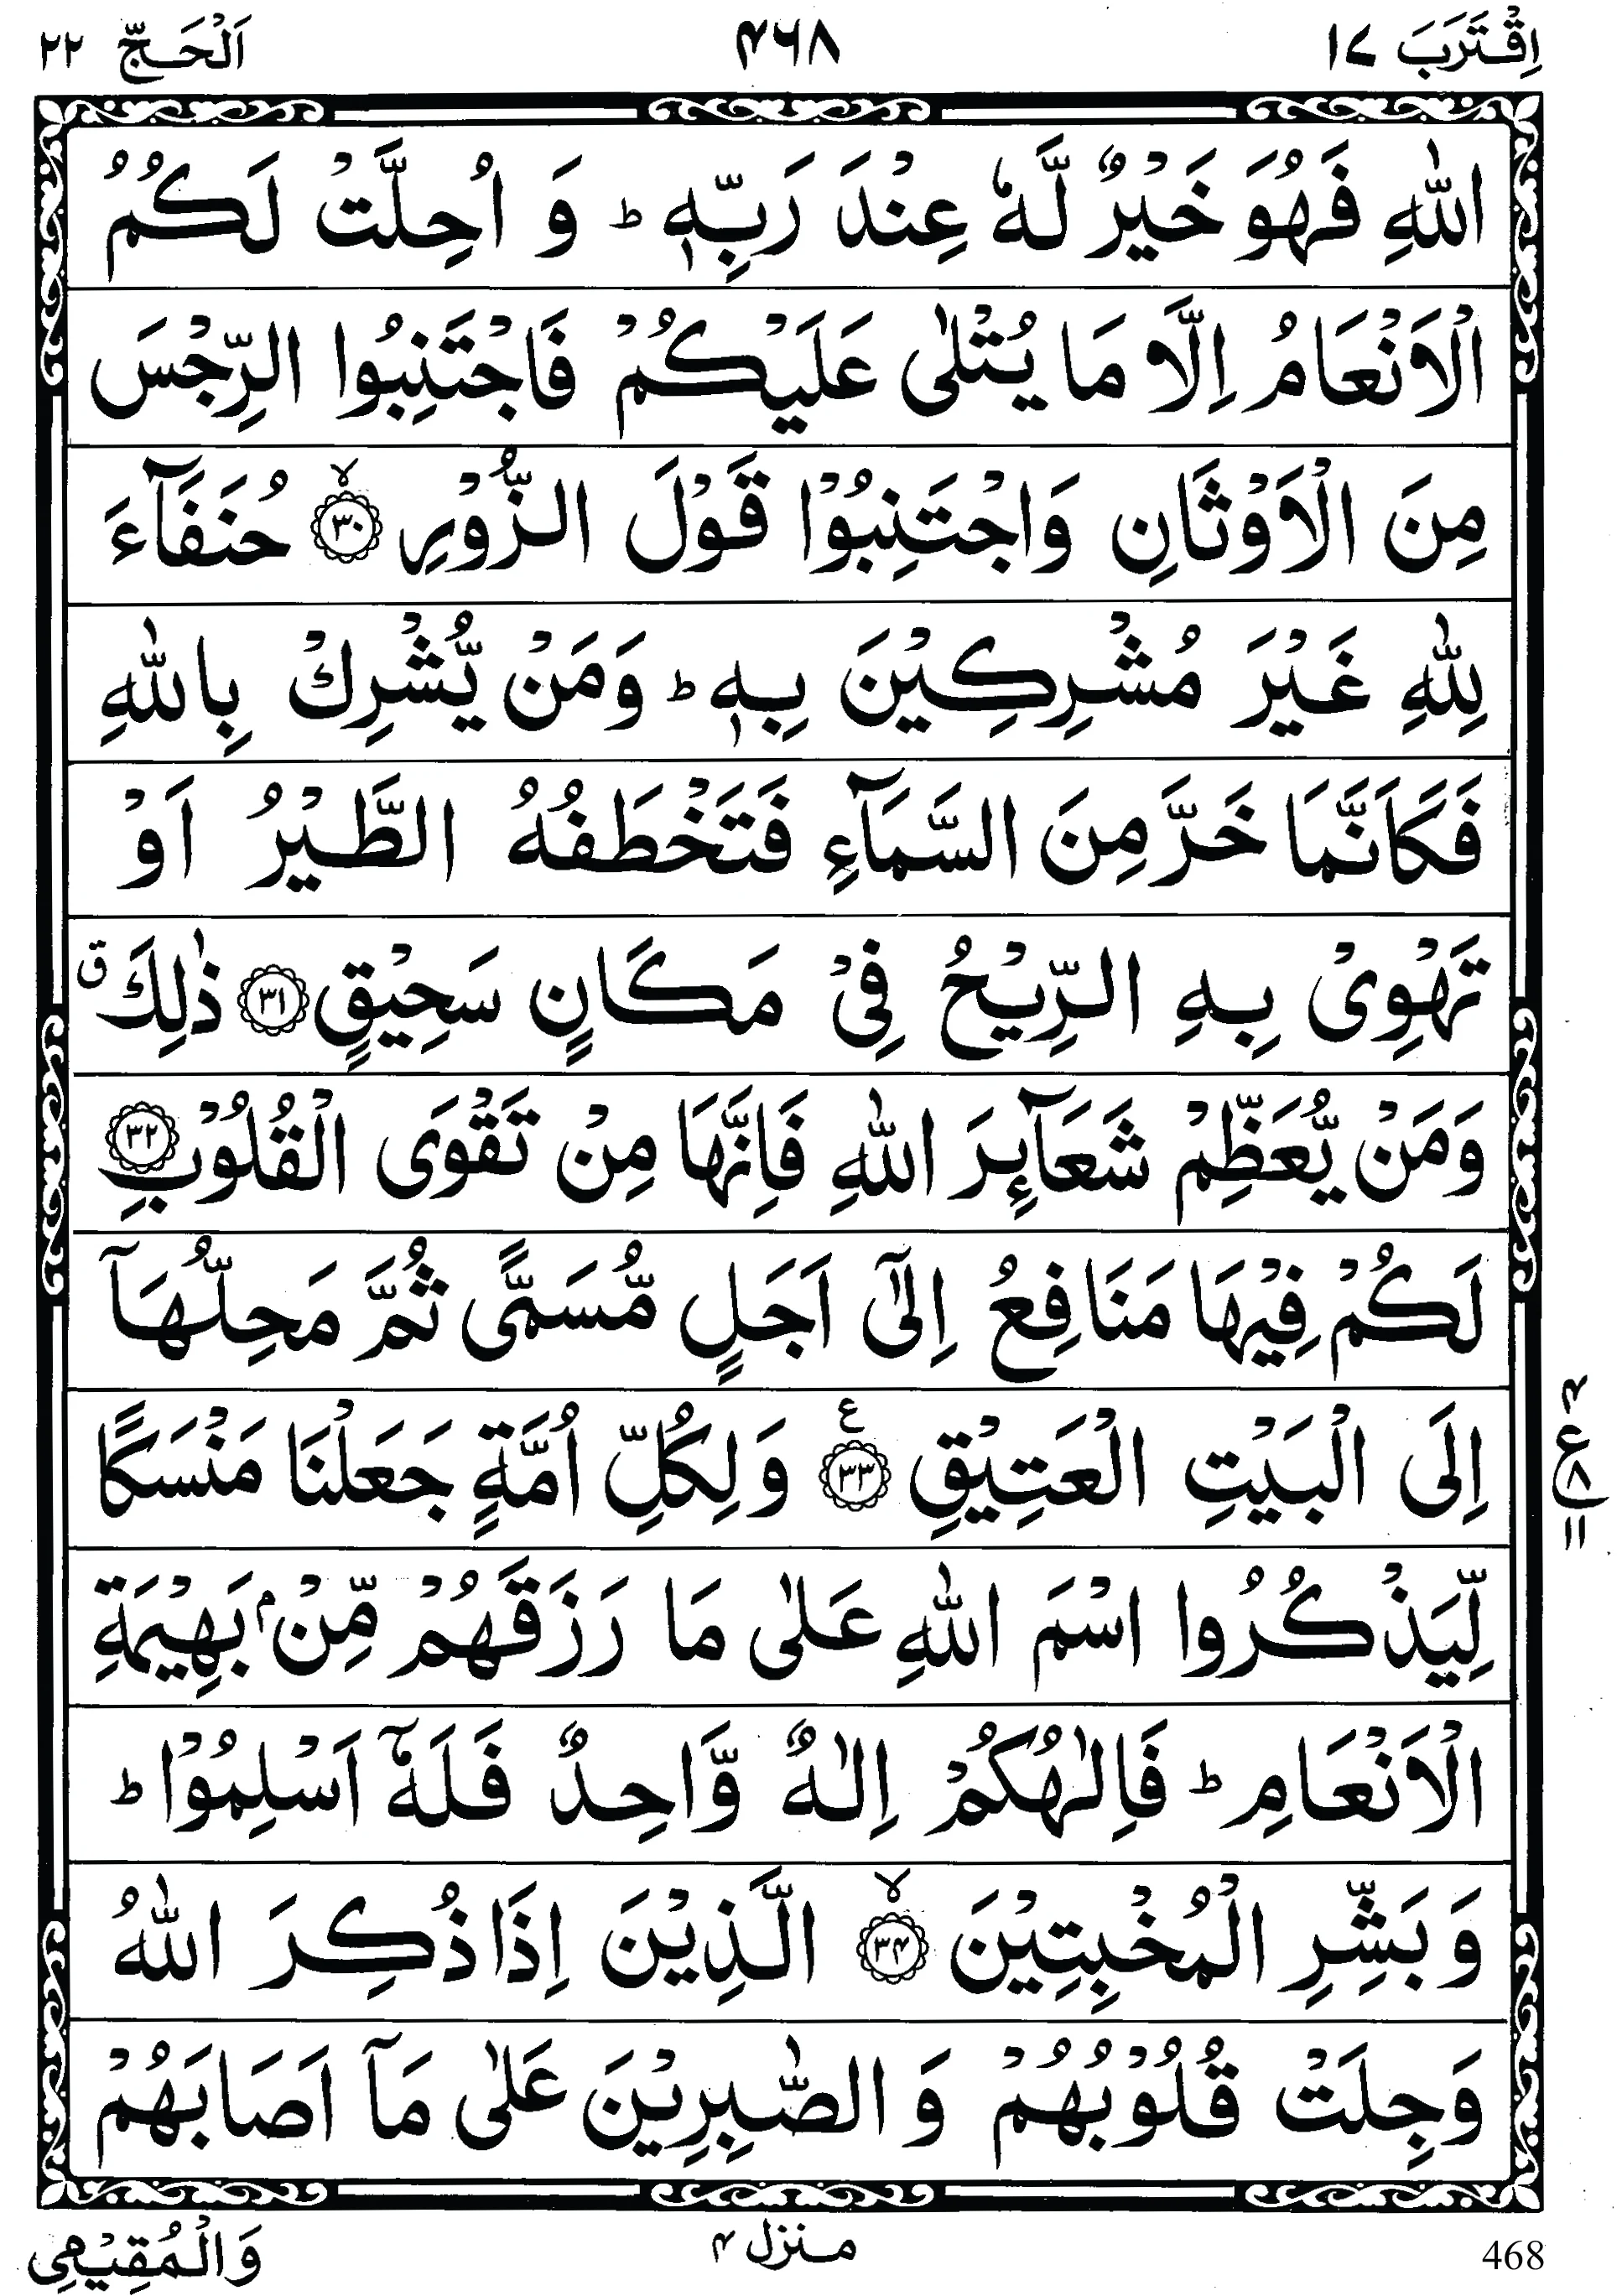 اِقْتَرَبَ ١٧ ۴۶۸ اَلْحَجّ ٢٢
اللّٰهِ فَهُوَ خَيْرٌ لَّهٗ عِنْدَ رَبِّهٖ ؕ وَ اُحِلَّتْ لَكُمُ
الْاَنْعَامُ اِلَّا مَا يُتْلٰى عَلَيْكُمْ فَاجْتَنِبُوا الرِّجْسَ
مِنَ الْاَوْثَانِ وَاجْتَنِبُوْا قَوْلَ الزُّوْرِ ۙ‏﴿۳۰﴾ حُنَفَآءَ
لِلّٰهِ غَيْرَ مُشْرِكِيْنَ بِهٖ ؕ وَمَنْ يُّشْرِكْ بِاللّٰهِ
فَكَاَنَّمَا خَرَّ مِنَ السَّمَآءِ فَتَخْطَفُهُ الطَّيْرُ اَوْ
تَهْوِىْ بِهِ الرِّيْحُ فِىْ مَكَانٍ سَحِيْقٍ ﴿۳۱﴾ ذٰلِكَ ق
وَمَنْ يُّعَظِّمْ شَعَآئِرَ اللّٰهِ فَاِنَّهَا مِنْ تَقْوَى الْقُلُوْبِ ﴿۳۲﴾
لَكُمْ فِيْهَا مَنَافِعُ اِلٰٓى اَجَلٍ مُّسَمًّى ثُمَّ مَحِلُّهَآ
اِلَى الْبَيْتِ الْعَتِيْقِ ﴿۳۳﴾ ع وَلِكُلِّ اُمَّةٍ جَعَلْنَا مَنْسَكًا
۴ ع ٧ ١١
لِّيَذْكُرُوا اسْمَ اللّٰهِ عَلٰى مَا رَزَقَهُمْ مِّنْۢ بَهِيْمَةِ
الْاَنْعَامِ ؕ فَاِلٰهُكُمْ اِلٰهٌ وَّاحِدٌ فَلَهٗۤ اَسْلِمُوْا ؕ
وَ بَشِّرِ الْمُخْبِتِيْنَ ۙ‏﴿۳۴﴾ الَّذِيْنَ اِذَا ذُكِرَ اللّٰهُ
وَجِلَتْ قُلُوْبُهُمْ وَ الصّٰبِرِيْنَ عَلٰى مَآ اَصَابَهُمْ
468 منزل ۴ وَالْمُقِيْمِى